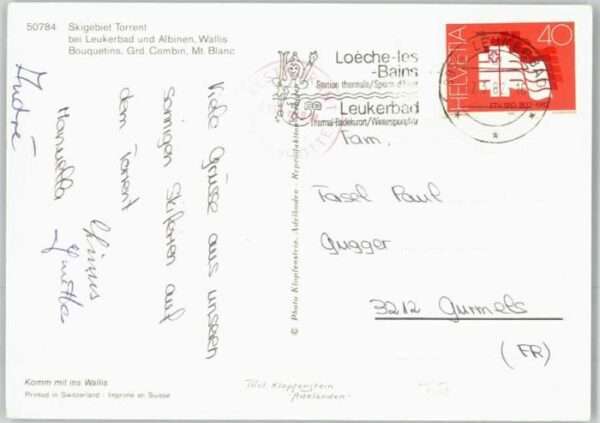 50784 Skigebiet Torrent
bei Leukerbad und Albinen, Wallis
Bouquetins, Grd. Combin, Mt. Blanc
Viele Grüsse aus unseren
sonnigen Skiferien auf
dem Torrent
Manuella
André
© Photo Klopfenstein, Adelboden
Loèche-les
-Bains
Station thermale/Sports d'hiver
Leukerbad
Thermal-Badekurort/Wintersportplatz
HELVETIA 40
Fam.
Fasel Paul
Gugger
3212 Gurmels
(FR)
Komm mit ins Wallis
Printed in Switzerland - Imprimé en Suisse
Phot. Klopfenstein
Adelboden